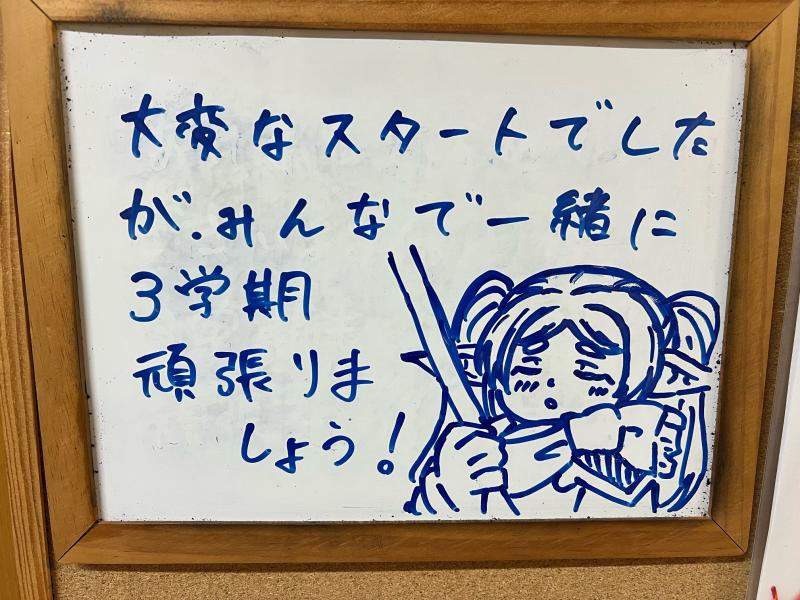 大変なスタートでした
が、みんなで一緒に
3学期
頑張りま
しょう!